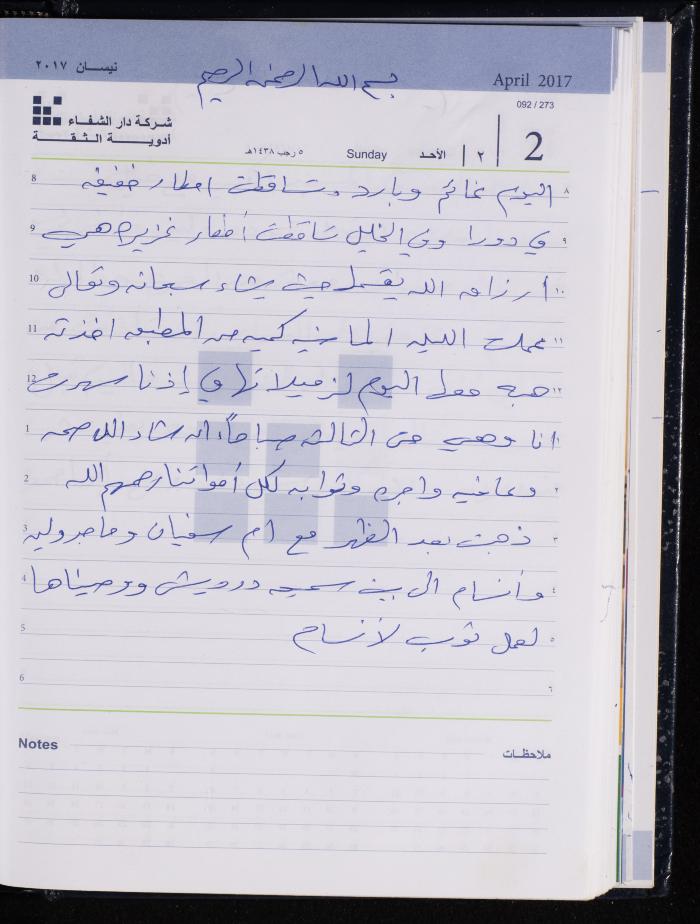 نيسان ٢٠١٧
بسم الله الرحمن الرحيم
April 2017
092 / 273
شركة دار الشفاء
أدوية الثقة
٥ رجب ١٤٣٨هـ Sunday الأحد ٢ 2
8 اليوم غائم وبارد وتساقطت امطار خفيفه ٨
9 في دورا وفي الخليل تساقطت أمطار غزيره هي ٩
10 ارزاق الله يقسمها حيث يشاء سبحانه وتعالى ١٠
11 عملت الليله الماضيه كميه من المطبعه اخذته ١١
12 هبه معها اليوم لزميلاتها في إذنا سهرت ١٢
1 انا وهي حتى الثالثه صباحاً ان شاء الله صحه ١
2 وعافيه واجره وثوابه لكل أمواتنا رحمهم الله ٢
3 ذهبت بعد الظهر مع ام سفيان وماجدولين ٣
4 وأنسام الى بيت سميحه درويش ووصيناها ٤
5 لعمل ثوب لأنسام ٥
6 ٦
Notes ملاحظات